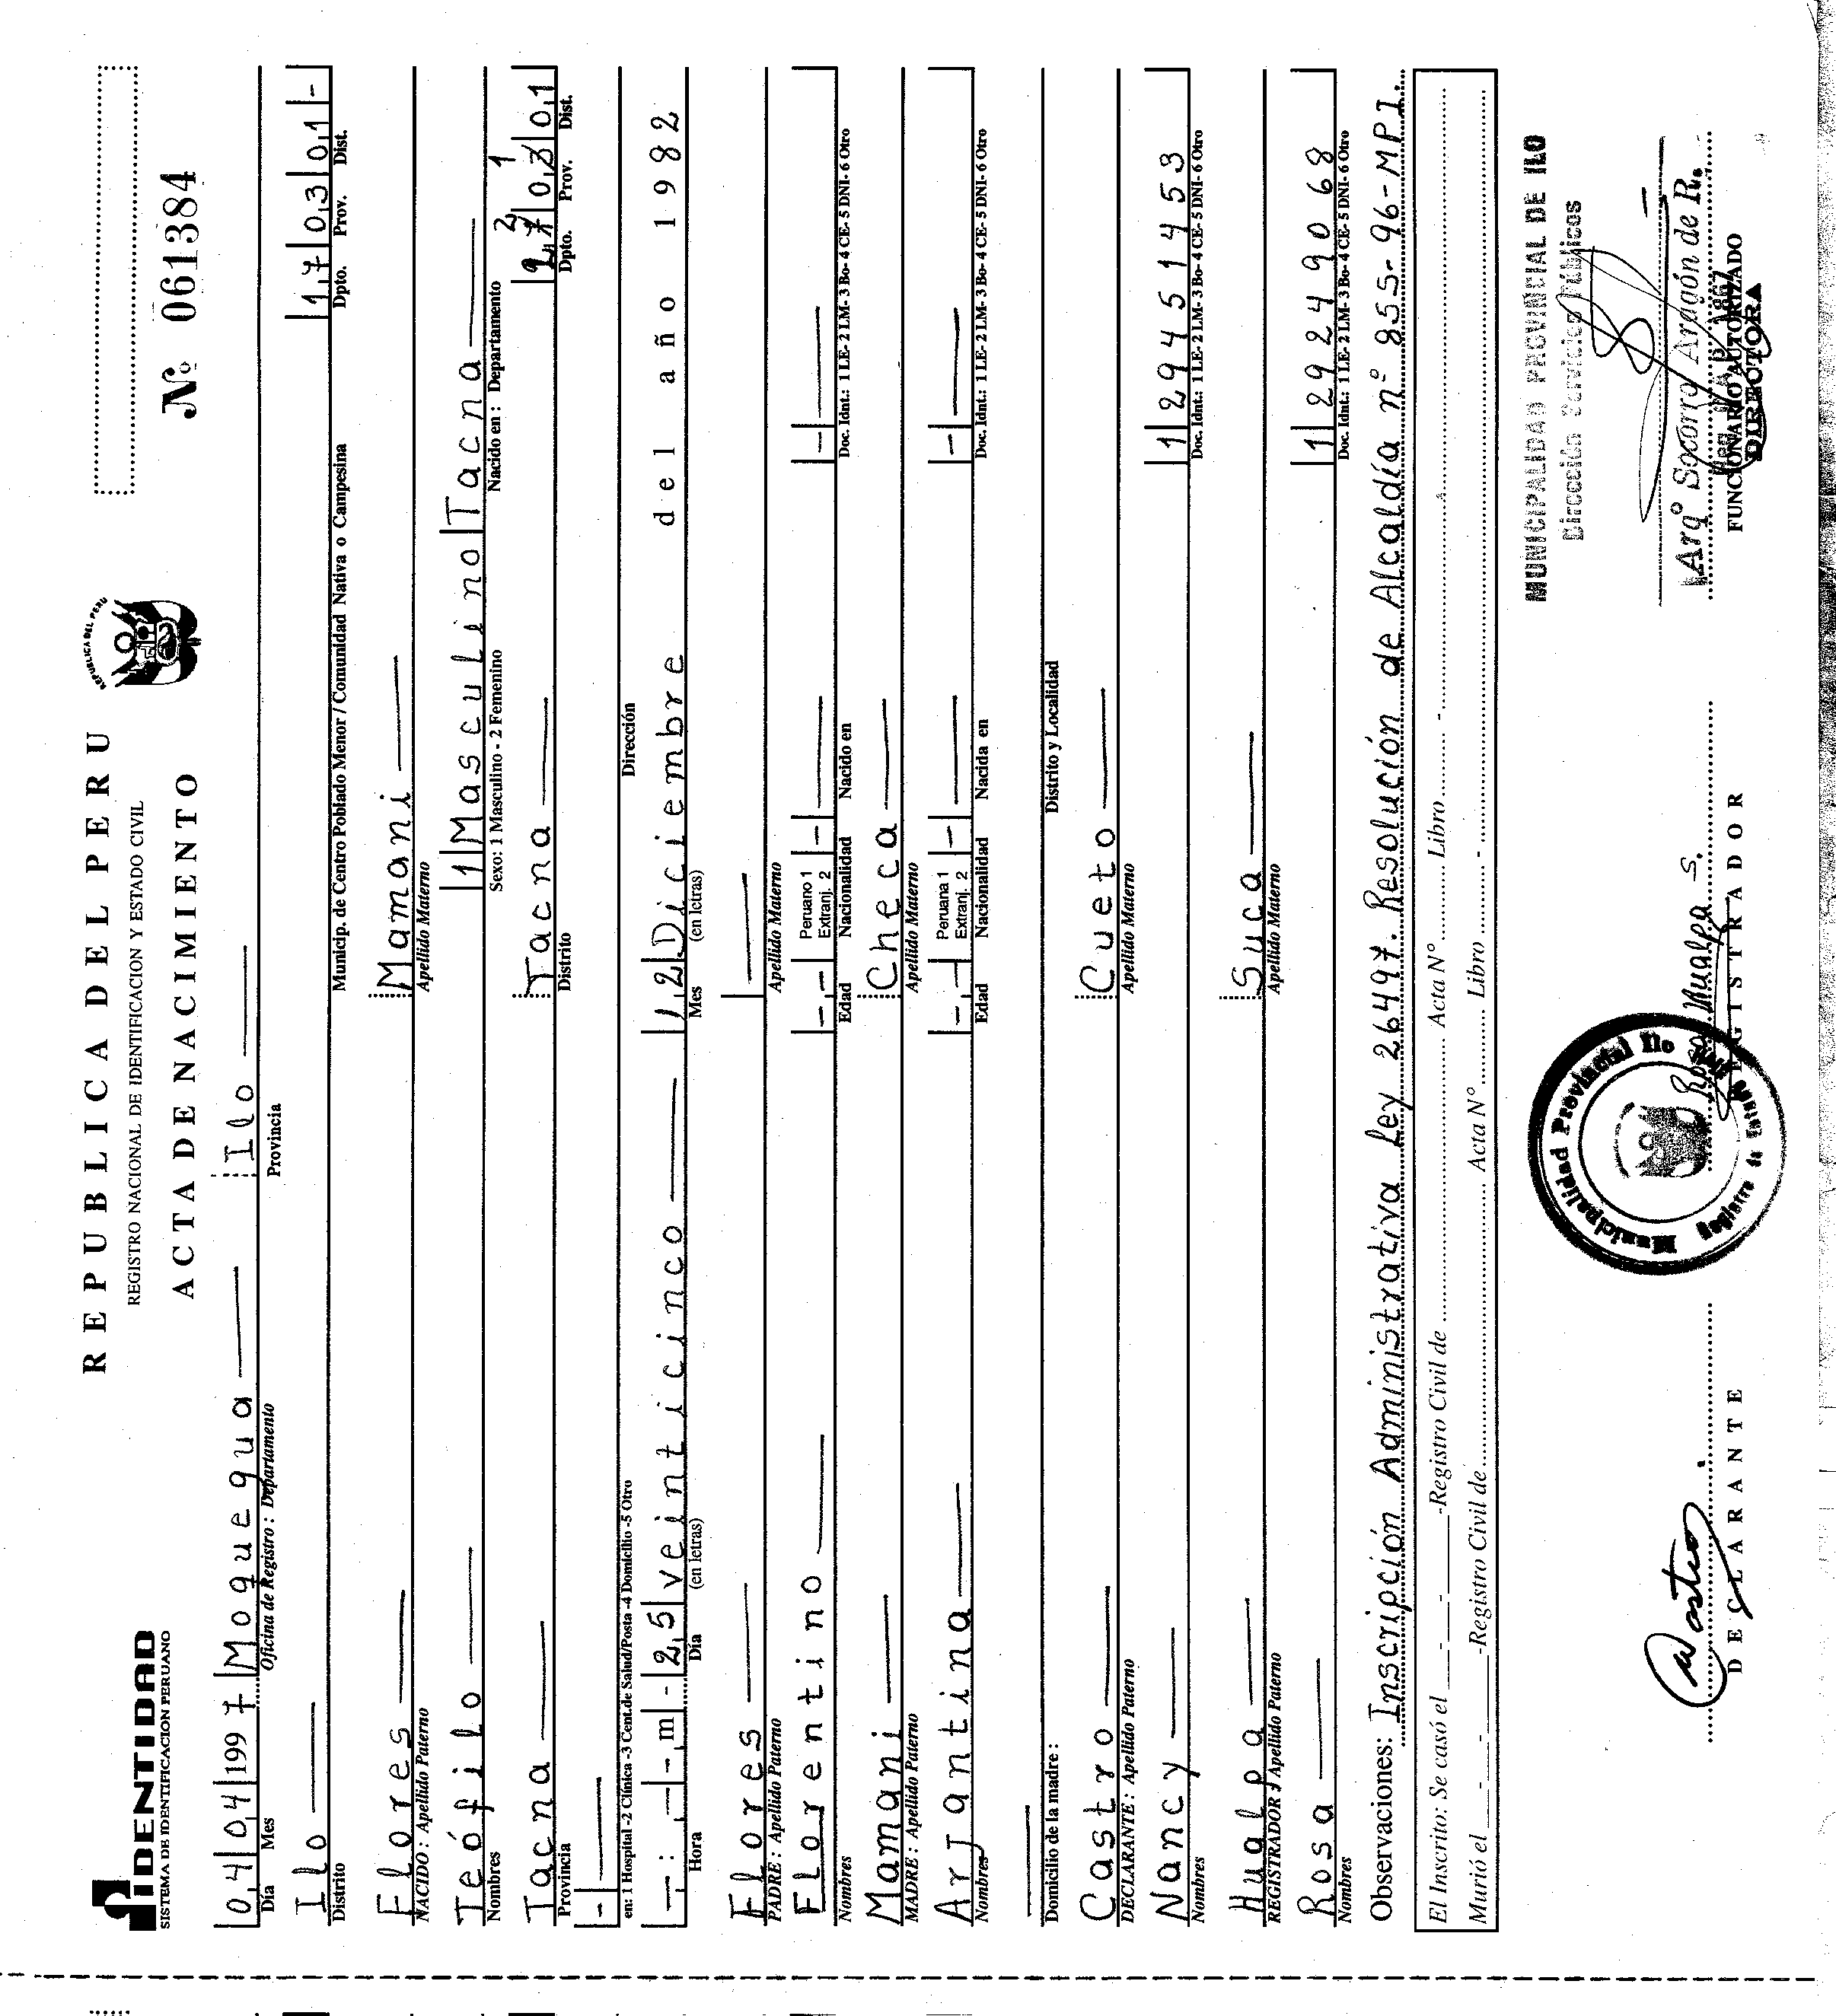 IDENTIDAD
SISTEMA DE IDENTIFICACION PERUANO
REPUBLICA DEL PERU
REGISTRO NACIONAL DE IDENTIFICACION Y ESTADO CIVIL
ACTA DE NACIMIENTO
REPUBLICA DEL PERU
Nº 061384
0,4 0,4 199 7 Moquegua Ilo
Día Mes Oficina de Registro : Departamento Provincia
Ilo 1,7 0,3 0,1 -
Distrito Municip. de Centro Poblado Menor / Comunidad Nativa o Campesina Dpto. Prov. Dist.
Flores Mamani
NACIDO : Apellido Paterno Apellido Materno
Teófilo 1 Masculino Tacna
Nombres Sexo: 1 Masculino - 2 Femenino Nacido en : Departamento
Tacna Tacna 0,1
Provincia Distrito Dpto. Prov. Dist.
-
en: 1 Hospital -2 Clínica -3 Cent.de Salud/Posta -4 Domicilio -5 Otro Dirección
- : - - m - 2,5 veinticinco 1,2 Diciembre del año 1982
Hora Día (en letras) Mes (en letras)
Flores
PADRE : Apellido Paterno Apellido Materno
Florentino - - Peruano 1 Extranj. 2 - -
Nombres Edad Nacionalidad Nacido en Doc. Idnt.: 1 LE- 2 LM- 3 Bo- 4 CE- 5 DNI- 6 Otro
Mamani Checa
MADRE : Apellido Paterno Apellido Materno
Arjantina - - Peruana 1 Extranj. 2 - -
Nombres Edad Nacionalidad Nacida en Doc. Idnt.: 1 LE- 2 LM- 3 Bo- 4 CE- 5 DNI- 6 Otro
Domicilio de la madre : Distrito y Localidad
Castro Cueto
DECLARANTE : Apellido Paterno Apellido Materno
Nancy 1 29451453
Nombres Doc. Idnt.: 1 LE- 2 LM- 3 Bo- 4 CE- 5 DNI- 6 Otro
Hualpa Suca
REGISTRADOR : Apellido Paterno Apellido Materno
Rosa 1 29249068
Nombres Doc. Idnt.: 1 LE- 2 LM- 3 Bo- 4 CE- 5 DNI- 6 Otro
Observaciones: Inscripción Administrativa Ley 26497. Resolución de Alcaldía nº 855-96-MPI.
El Inscrito: Se casó el - - -Registro Civil de Acta Nº Libro -
Murió el - - -Registro Civil de Acta Nº Libro -
MUNICIPALIDAD PROVINCIAL DE ILO
Dirección Servicios Públicos
Municipalidad Provincial Ilo
Castro
Rosa Hualpa S.
Arqº Socorro Aragón de R.
DECLARANTE
REGISTRADOR
FUNCIONARIO AUTORIZADO
DIRECTORA